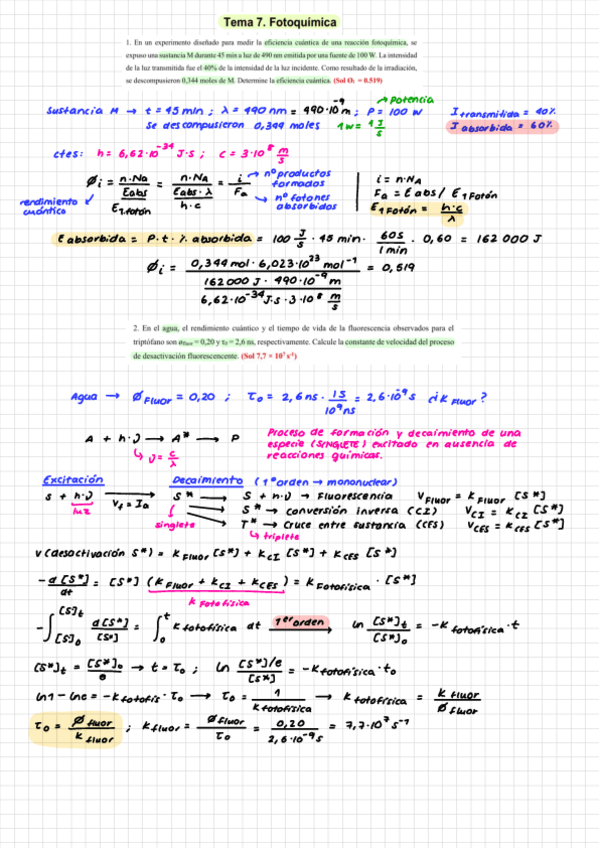 Tema 7. Fotoquímica
1. En un experimento diseñado para medir la eficiencia cuántica de una reacción fotoquímica, se
expuso una sustancia M durante 45 min a luz de 490 nm emitida por una fuente de 100 W. La intensidad
de la luz transmitida fue el 40% de la intensidad de la luz incidente. Como resultado de la irradiación,
se descompusieron 0,344 moles de M. Determine la eficiencia cuántica. (Sol Oᵢ = 0.519)
Sustancia M → t = 45 min ; λ = 490 nm = 490·10⁻⁹ m ; P = 100 W → Potencia
Itransmitida = 40%
Se descompusieron 0,344 moles 1W = 1 J/s
I absorbida = 60%
ctes: h = 6,62·10⁻³⁴ J·s ; c = 3·10⁸ m/s
rendimiento cuántico ↙ Øi = n·Na / (Eabs / E1fotón) = n·NA / (Eabs·λ / h·c) = i / Fa → nº productos formados
→ nº fotones absorbidos
i = n·NA
Fa = Eabs / E1Fotón
E1Fotón = h·c / λ
E absorbida = P·t·% absorbida = 100 J/s · 45 min · 60s / 1min · 0,60 = 162 000 J
Øi = 0,344 mol · 6,023·10²³ mol⁻¹ / (162000 J · 490·10⁻⁹ m / 6,62·10⁻³⁴ J·s · 3·10⁸ m/s) = 0,519
2. En el agua, el rendimiento cuántico y el tiempo de vida de la fluorescencia observados para el
triptófano son øfluor = 0,20 y τ₀ = 2,6 ns, respectivamente. Calcule la constante de velocidad del proceso
de desactivación fluorescencente. (Sol 7,7 × 10⁷ s⁻¹)
Agua → Ø Fluor = 0,20 ; τ₀ = 2,6 ns · 1s / 10⁹ns = 2,6·10⁻⁹ s ¿K Fluor?
A + h·ν → A* → P
↳ ν = c/λ
Proceso de formación y decaimiento de una
especie (SINGLETE) excitado en ausencia de
reacciones químicas.
Excitación
Decaimiento (1º orden → mononuclear)
S + h·ν → S* → S + h·ν → Fluorescencia VFluor = K Fluor [S*]
luz
Vf = Ia
singlete
S* → conversión inversa (CI) VCI = KCI [S*]
T* → Cruce entre sustancia (CES) VCES = KCES [S*]
↳ triplete
V(desactivación S*) = K Fluor [S*] + KCI [S*] + KCES [S*]
-d[S*]/dt = [S*] (K Fluor + KCI + KCES) = K Fotofísica · [S*]
K Fotofísica
-∫[S]₀[S]t d[S*]/[S*] = ∫₀ᵗ K fotofísica dt → 1er orden → ln [S*]t/[S*]₀ = -K fotofísica · t
[S*]t = [S*]₀/e → t = τ₀ ; ln [S*]/e / [S*] = -K fotofísica · t₀
ln1 - lne = -K fotofís · τ₀ → τ₀ = 1 / K fotofísica → K fotofísica = K fluor / Ø fluor
τ₀ = Ø fluor / K fluor ; K fluor = Ø fluor / τ₀ = 0,20 / 2,6·10⁻⁹ s = 7,7·10⁷ s⁻¹